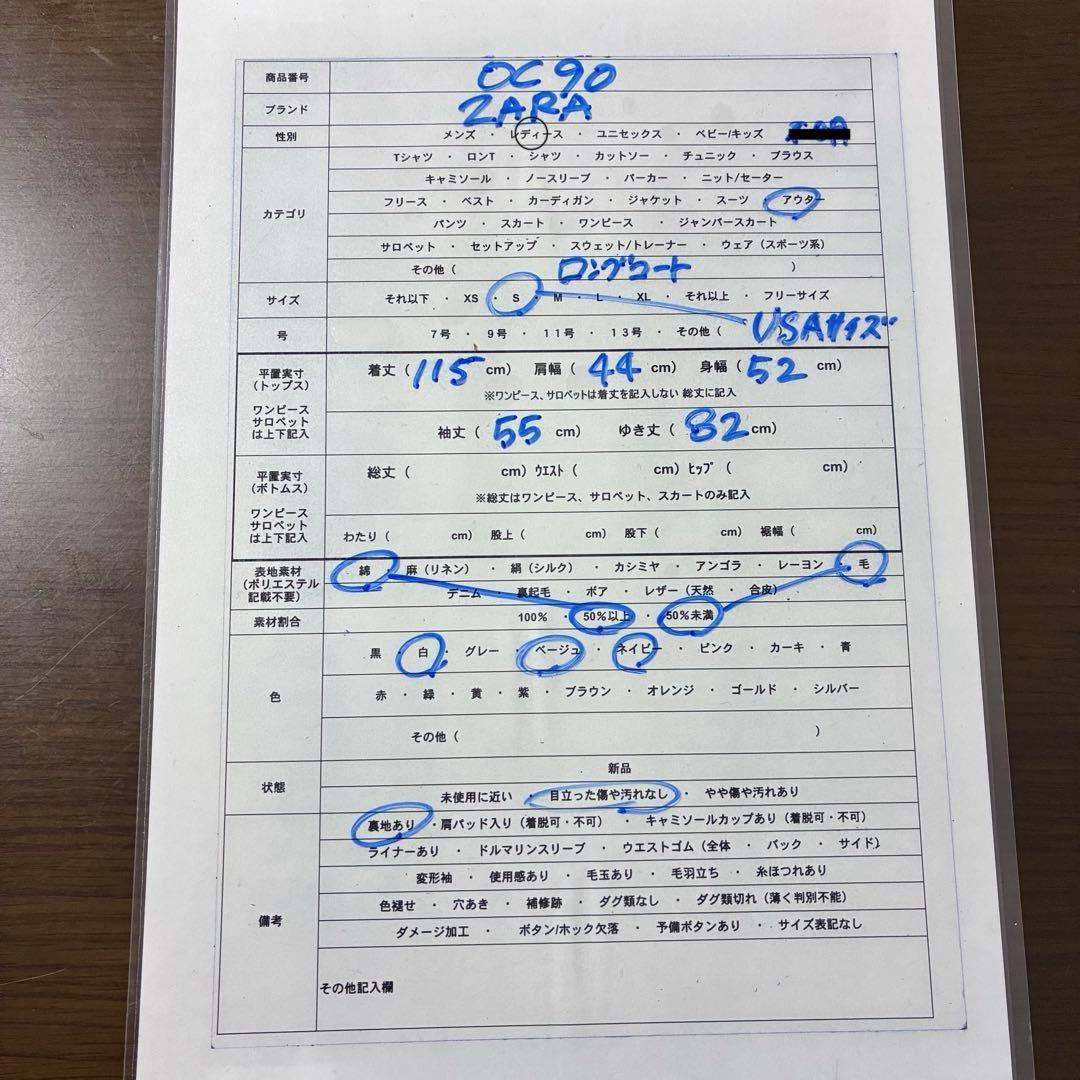 商品番号 OC90
ブランド ZARA
性別 メンズ ・ レディース ・ ユニセックス ・ ベビー/キッズ
カテゴリ
Tシャツ ・ ロンT ・ シャツ ・ カットソー ・ チュニック ・ ブラウス
キャミソール ・ ノースリーブ ・ パーカー ・ ニット/セーター
フリース ・ ベスト ・ カーディガン ・ ジャケット ・ スーツ ・ アウター
パンツ ・ スカート ・ ワンピース ・ ジャンパースカート
サロペット ・ セットアップ ・ スウェット/トレーナー ・ ウェア（スポーツ系）
その他（ ロングコート ）
サイズ それ以下 ・ XS ・ S ・ M ・ L ・ XL ・ それ以上 ・ フリーサイズ
号 7号 ・ 9号 ・ 11号 ・ 13号 ・ その他（ ） USAサイズ
平置実寸
（トップス）
ワンピース
サロペット
は上下記入
着丈（ 115 cm） 肩幅（ 44 cm） 身幅（ 52 cm）
※ワンピース、サロペットは着丈を記入しない 総丈に記入
袖丈（ 55 cm） ゆき丈（ 82 cm）
平置実寸
（ボトムス）
ワンピース
サロペット
は上下記入
総丈（ cm）ｳｴｽﾄ（ cm）ﾋｯﾌﾟ（ cm）
※総丈はワンピース、サロペット、スカートのみ記入
わたり（ cm） 股上（ cm） 股下（ cm） 裾幅（ cm）
表地素材
（ポリエステル
記載不要）
綿 ・ 麻（リネン） ・ 絹（シルク） ・ カシミヤ ・ アンゴラ ・ レーヨン ・ 毛
デニム ・ 裏起毛 ・ ボア ・ レザー（天然 ・ 合皮）
素材割合 100% ・ 50%以上 ・ 50%未満
色
黒 ・ 白 ・ グレー ・ ベージュ ・ ネイビー ・ ピンク ・ カーキ ・ 青
赤 ・ 緑 ・ 黄 ・ 紫 ・ ブラウン ・ オレンジ ・ ゴールド ・ シルバー
その他（ ）
状態
新品
未使用に近い ・ 目立った傷や汚れなし ・ やや傷や汚れあり
備考
裏地あり ・ 肩パッド入り（着脱可・不可） ・ キャミソールカップあり（着脱可・不可）
ライナーあり ・ ドルマリンスリーブ ・ ウエストゴム（全体 ・ バック ・ サイド）
変形袖 ・ 使用感あり ・ 毛玉あり ・ 毛羽立ち ・ 糸ほつれあり
色褪せ ・ 穴あき ・ 補修跡 ・ タグ類なし ・ タグ類切れ（薄く判別不能）
ダメージ加工 ・ ボタン/ホック欠落 ・ 予備ボタンあり ・ サイズ表記なし
その他記入欄